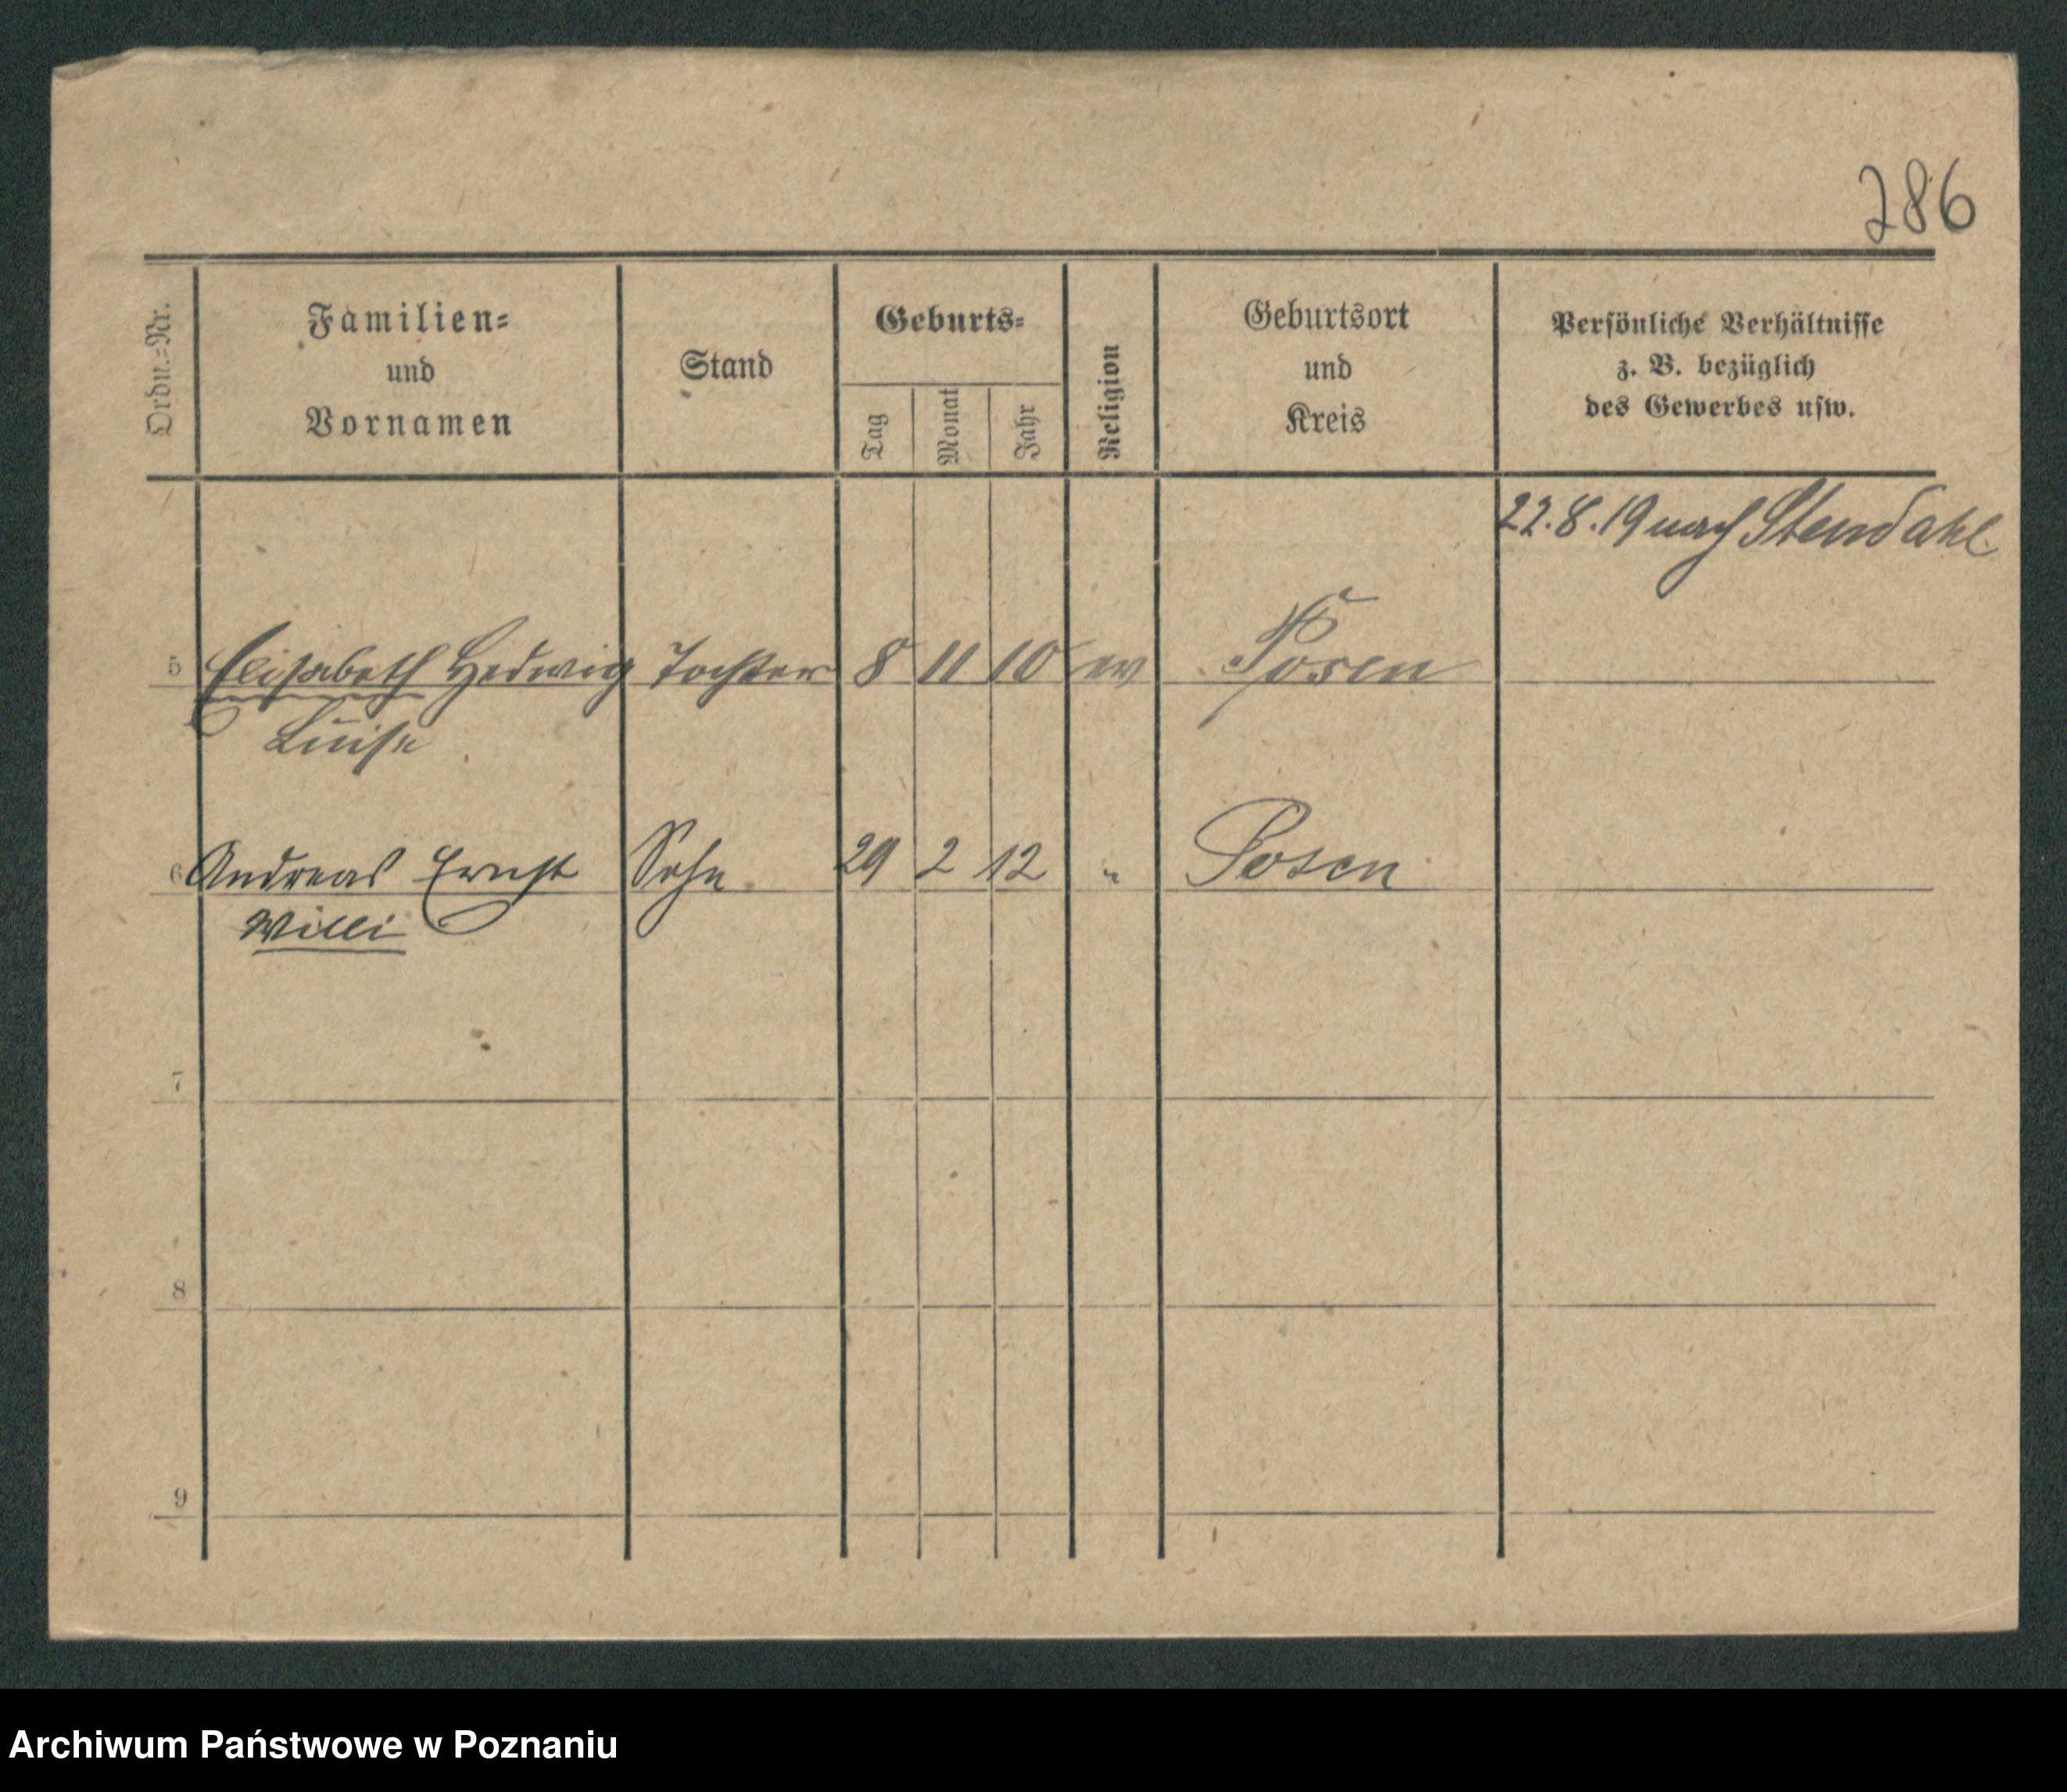 286
Ordn.-Nr.
Familien-
und
Vornamen
Stand
Geburts-
Tag
Monat
Jahr
Religion
Geburtsort
und
Kreis
Persönliche Verhältnisse
z. B. bezüglich
des Gewerbes usw.
22.8.19 nach Stendahl
5 Elisabeth Hedwig Tochter 8 11 10 ev Posen
Luise
6 Andreas Ernst Sohn 29 2 12 " Posen
Willi
7
8
9
Archiwum Państwowe w Poznaniu